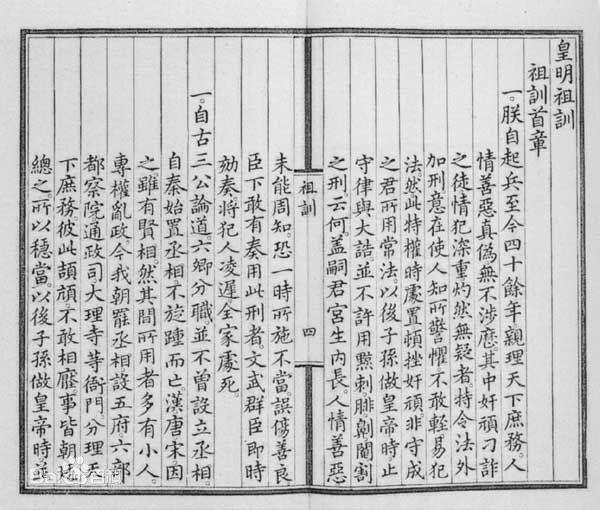 皇明祖訓
祖訓首章
一。朕自起兵至今四十餘年。親理天下庶務。人
情善惡真偽。無不涉歷。其中奸頑刁詐
之徒。情犯深重。灼然無疑者。特令法外
加刑。意在使人知所警懼。不敢輕易犯
法。然此特權時處置。頓挫奸頑。非守成
之君所用常法。以後子孫做皇帝時。止
守律與大誥。並不許用黥刺腓劓閹割
之刑。云何。蓋嗣君宮生內長。人情善惡
祖訓
四
未能周知。恐一時所施不當。誤傷善良
臣下敢有奏用此刑者。文武群臣即時
劾奏。將犯人凌遲。全家處死。
一。自古三公論道。六卿分職。並不曾設立丞相
自秦始置丞相。不旋踵而亡。漢唐宋因
之。雖有賢相。然其間所用者多有小人。
專權亂政。今我朝罷丞相。設五府六部
都察院。通政司。大理寺等衙門。分理天
下庶務。彼此頡頏。不敢相壓。事皆朝廷
總之。所以穩當。以後子孫做皇帝時。並